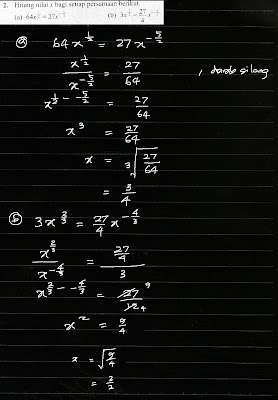 2. Hitung nilai x bagi setiap persamaan berikut.
(a) 64x^{1/2} = 27x^{-5/2} (b) 3x^{2/3} = 27/4 x^{-4/3}
(a) 64x^{1/2} = 27x^{-5/2}
x^{1/2} / x^{-5/2} = 27/64 , darab silang
x^{1/2 - -5/2} = 27/64
x^3 = 27/64
x = ∛(27/64)
= 3/4
(b) 3x^{2/3} = 27/4 x^{-4/3}
x^{2/3} / x^{-4/3} = (27/4) / 3
x^{2/3 - -4/3} = 27/12 9 4
x^2 = 9/4
x = √(9/4)
= 3/2